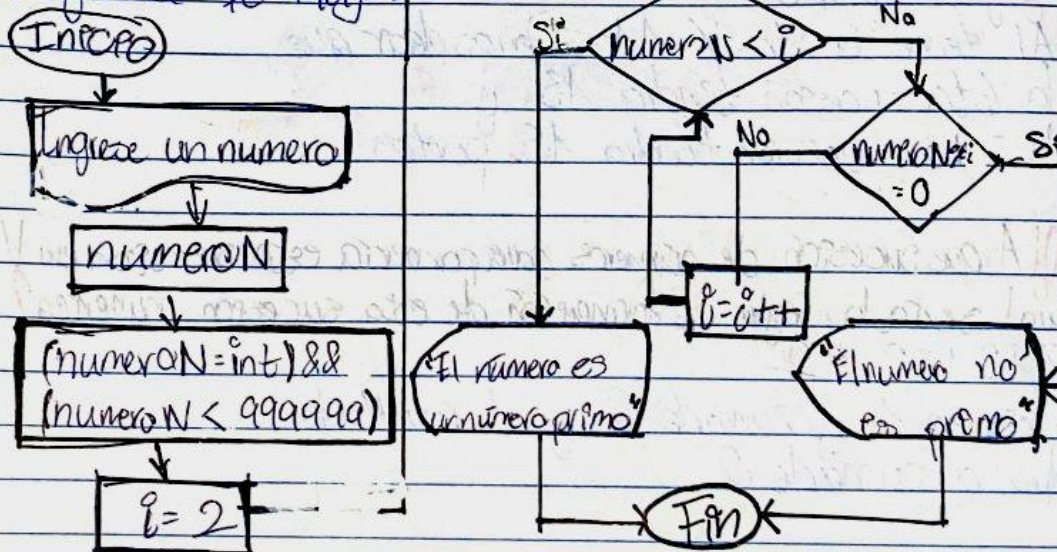 Inicio
Ingrese un numero
numeroN
(numeroN=int)&&
(numeroN < 999999)
i= 2
Si
numeroN < i
No
numeroN%i
=0
Si
No
i=i++
"El número es
un número primo"
"El numero no
es primo"
Fin